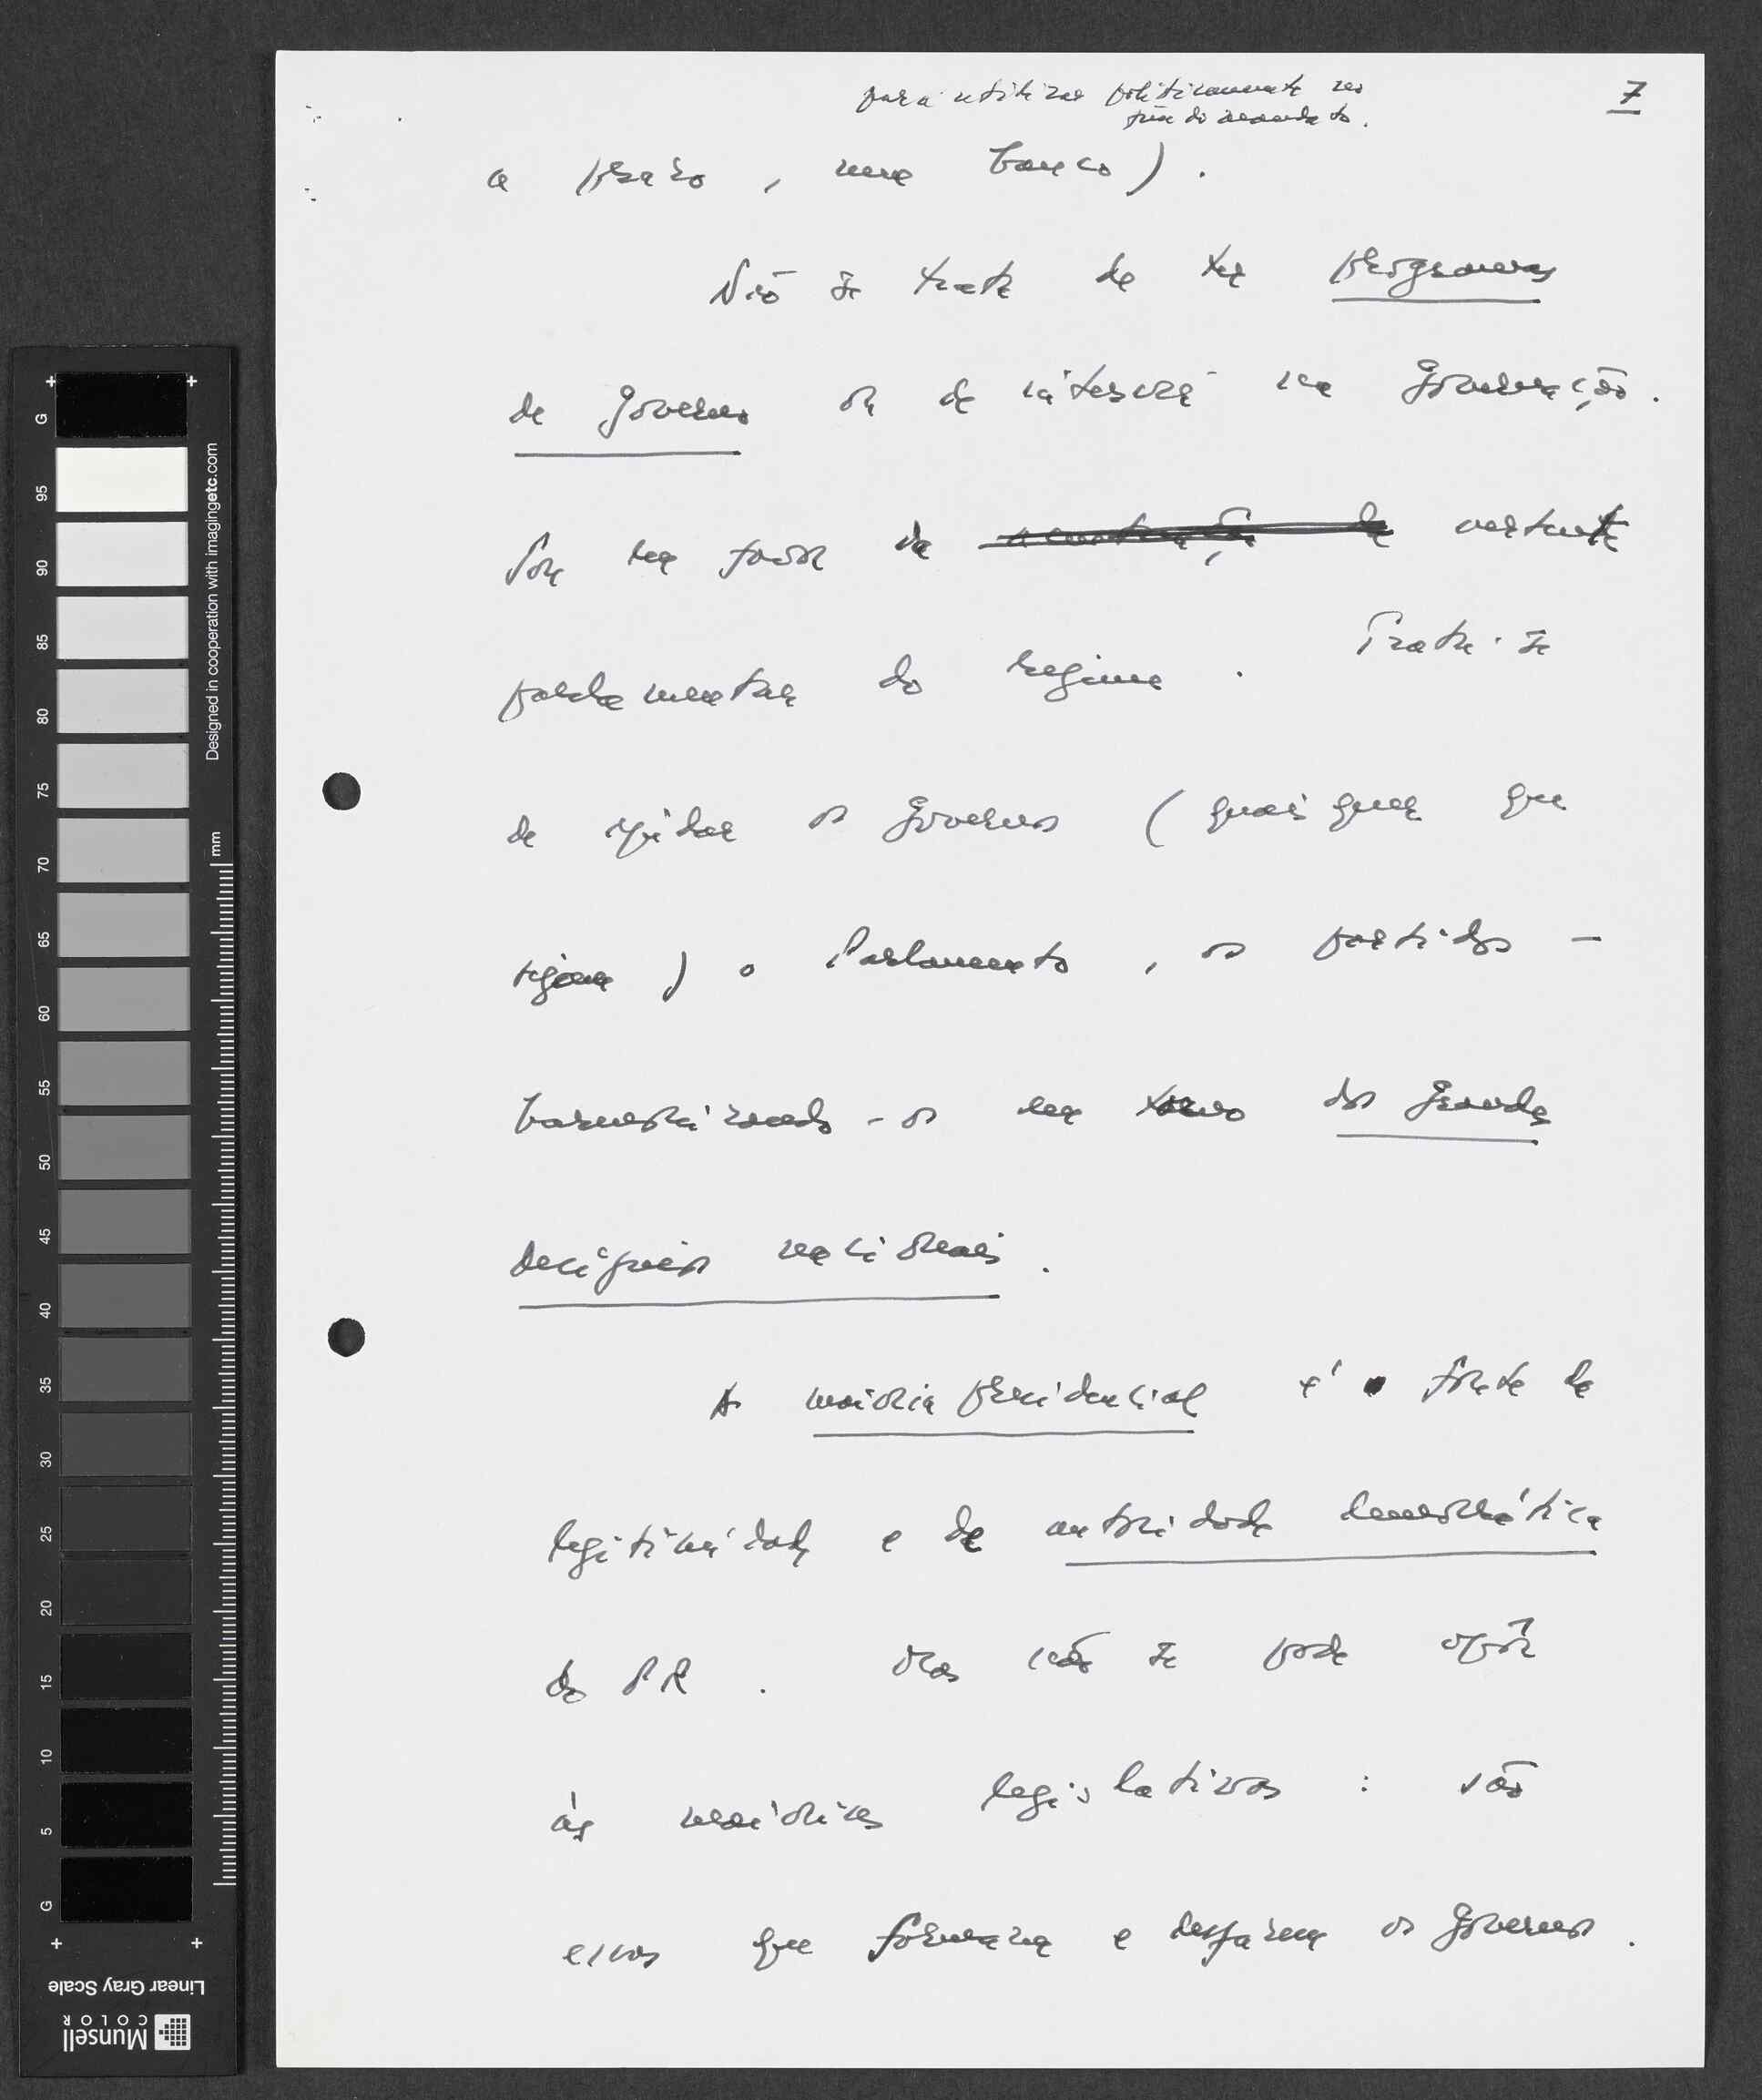 para utilizar politicamente no
fim do mandato.
7
a prazo, num banco).
Não se trata de ter programas
de governo ou de intervir na governação.
Sou em favor da vertente
parlamentar do regime. Trata-se
de ajudar os governos (quaisquer que
sejam) o Parlamento, os partidos —
harmonizando-os em torno das grandes
decisões nacionais.
A maioria presidencial é fonte de
legitimidade e de autoridade democrática
do PR. Mas não se pode opôr
às maiorias legislativas: são
essas que formam e desfazem os governos.
G
95
90
85
80
75
70
65
60
55
50
45
40
35
30
25
20
15
10
5
G
Designed in cooperation with imagingetc.com
mm
Linear Gray Scale
Munsell
COLOR